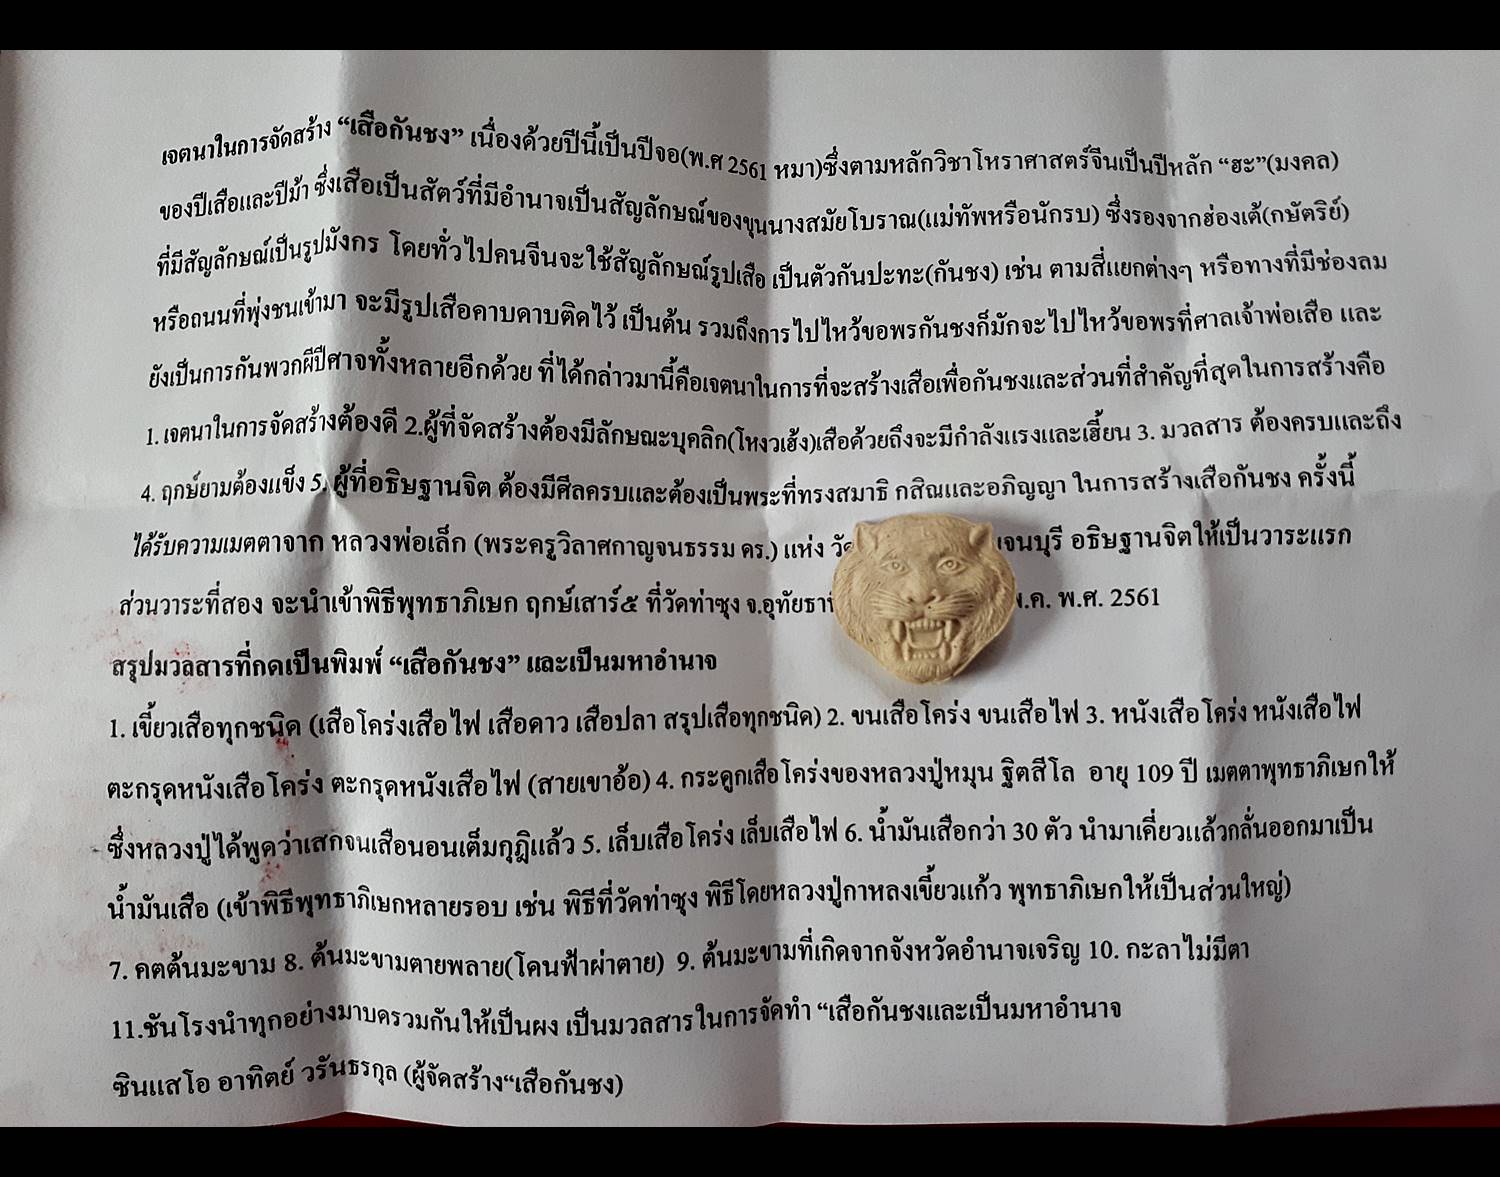 เจตนาในการจัดสร้าง “เสือกันชง” เนื่องด้วยปีนี้เป็นปีจอ(พ.ศ 2561 หมา)ซึ่งตามหลักวิชาโหราศาสตร์จีนเป็นปีหลัก “ฮะ”(มงคล)
ของปีเสือและปีม้า ซึ่งเสือเป็นสัตว์ที่มีอำนาจเป็นสัญลักษณ์ของขุนนางสมัยโบราณ(แม่ทัพหรือนักรบ) ซึ่งรองจากฮ่องเต้(กษัตริย์)
ที่มีสัญลักษณ์เป็นรูปมังกร โดยทั่วไปคนจีนจะใช้สัญลักษณ์รูปเสือ เป็นตัวกันปะทะ(กันชง) เช่น ตามสี่แยกต่างๆ หรือทางที่มีช่องลม
หรือถนนที่พุ่งชนเข้ามา จะมีรูปเสือคาบดาบติดไว้ เป็นต้น รวมถึงการไปไหว้ขอพรกันชงก็มักจะไปไหว้ขอพรที่ศาลเจ้าพ่อเสือ และ
ยังเป็นการกันพวกผีปีศาจทั้งหลายอีกด้วย ที่ได้กล่าวมานี้คือเจตนาในการที่จะสร้างเสือเพื่อกันชงและส่วนที่สำคัญที่สุดในการสร้างคือ
1. เจตนาในการจัดสร้างต้องดี 2.ผู้ที่จัดสร้างต้องมีลักษณะบุคลิก(โหงวเฮ้ง)เสือด้วยถึงจะมีกำลังแรงและเฮี้ยน 3. มวลสาร ต้องครบและถึง
4. ฤกษ์ยามต้องแข็ง 5. ผู้ที่อธิษฐานจิต ต้องมีศีลครบและต้องเป็นพระที่ทรงสมาธิ กสิณและอภิญญา ในการสร้างเสือกันชง ครั้งนี้
ได้รับความเมตตาจาก หลวงพ่อเล็ก (พระครูวิลาศกาญจนธรรม ดร.) แห่ง จนบุรี อธิษฐานจิตให้เป็นวาระแรก
ส่วนวาระที่สอง จะนำเข้าพิธีพุทธาภิเษก ฤกษ์เสาร์๕ ที่วัดท่าซุง จ.อุทัยธา .ค. พ.ศ. 2561
สรุปมวลสารที่กดเป็นพิมพ์ “เสือกันชง” และเป็นมหาอำนาจ
1. เขี้ยวเสือทุกชนิด (เสือโคร่งเสือไฟ เสือดาว เสือปลา สรุปเสือทุกชนิด) 2. ขนเสือโคร่ง ขนเสือไฟ 3. หนังเสือโคร่ง หนังเสือไฟ
ตะกรุดหนังเสือโคร่ง ตะกรุดหนังเสือไฟ (สายเขาอ้อ) 4. กระดูกเสือโคร่งของหลวงปู่หมุน ฐิตสีโล อายุ 109 ปี เมตตาพุทธาภิเษกให้
ซึ่งหลวงปู่ได้พูดว่าเสกจนเสือนอนเต็มกุฏิแล้ว 5. เล็บเสือโคร่ง เล็บเสือไฟ 6. น้ำมันเสือกว่า 30 ตัว นำมาเคี่ยวแล้วกลั่นออกมาเป็น
น้ำมันเสือ (เข้าพิธีพุทธาภิเษกหลายรอบ เช่น พิธีที่วัดท่าซุง พิธีโดยหลวงปู่กาหลงเขี้ยวแก้ว พุทธาภิเษกให้เป็นส่วนใหญ่)
7. คตต้นมะขาม 8. ต้นมะขามตายพลาย(โดนฟ้าผ่าตาย) 9. ต้นมะขามที่เกิดจากจังหวัดอำนาจเจริญ 10. กะลาไม่มีตา
11.ชันโรงนำทุกอย่างมาบดรวมกันให้เป็นผง เป็นมวลสารในการจัดทำ “เสือกันชงและเป็นมหาอำนาจ
ซินแสโอ อาทิตย์ วรันธรกุล (ผู้จัดสร้าง“เสือกันชง)